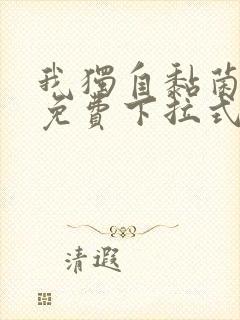 我獨自黏菌
免費下拉式
清遐